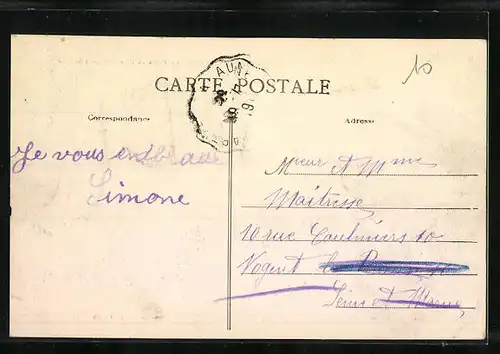 CARTE POSTALE
Correspondance
Adresse
10
Je vous embrasse
Simone
Mr et Mme
Maîtresse
10 rue Coulmiers 10
Nogent
Seine & Marne